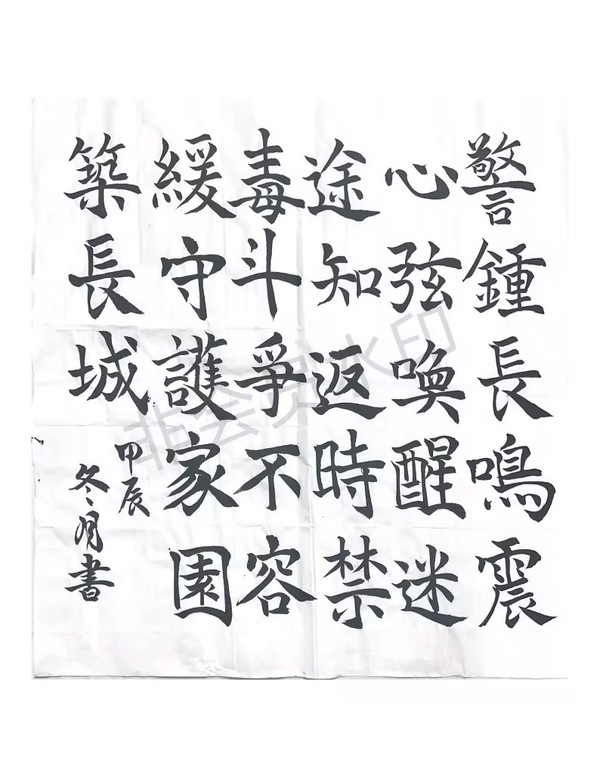 警鍾長鳴震
心弦喚醒迷
途知返時禁
毒斗爭不容
緩守護家園
築長城
甲辰
冬月書
非会员水印